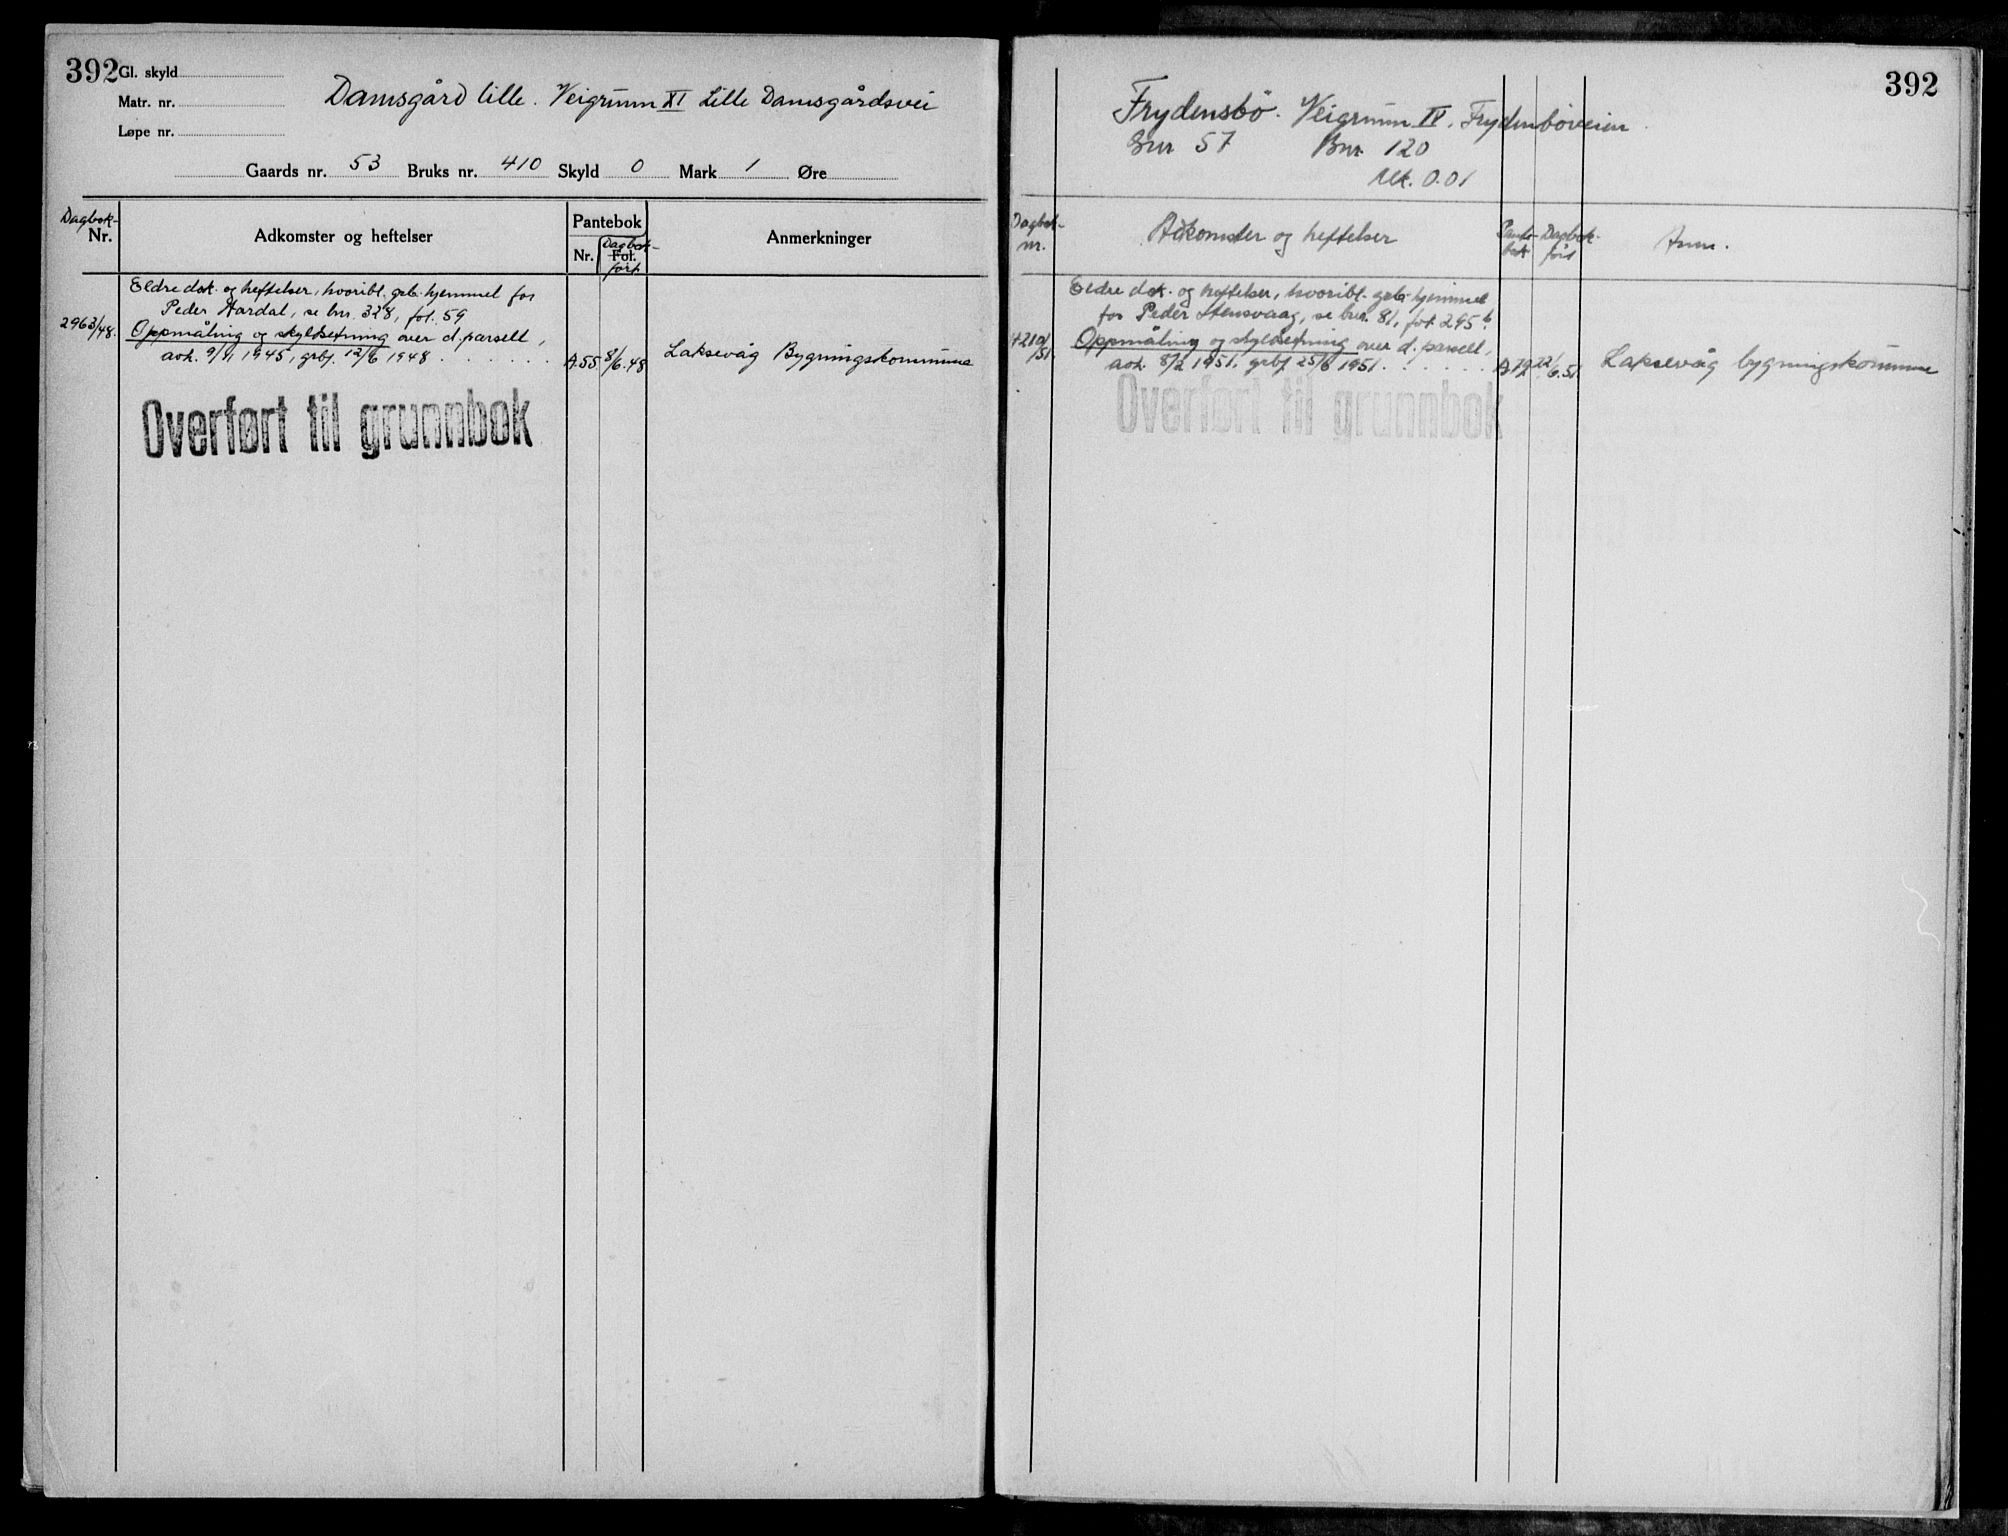 392
Gl. skyld
Matr. nr.
Løpe nr.
Damsgård lille. Veigrunn XI Lille Damsgårdsvei
Gaards nr. 53 Bruks nr. 410 Skyld 0 Mark 1 Øre
Dagbok-
Nr.
Adkomster og heftelser
Pantebok
Nr.
Dagbok-
Fol.
ført
Anmerkninger
Eldre dok. og heftelser, hvoribl. grb. hjemmel for
Peder Hardal, se bnr. 328, fol. 59
2963/48. Oppmåling og skyldsetning over d. parsell,
avh. 9/1 1945, grbf. 12/6 1948 . . . . . . A.55 8/6.48 Laksevåg Bygningskommune
Overført til grunnbok
392
Frydensbö. Veigrunn IV, Frydenböveien.
Gnr 57 Bnr. 120
Mk. 0.01
Dagbok-
nr.
Adkomster og heftelser
Pante-
bok
Dagbok-
ført
Anm.
Eldre dok. og heftelser, hvoribl. grb. hjemmel
for Peder Stensvaag, se bnr. 81, fol 295 b.
4210/51. Oppmåling og skyldsetning over d. parsell,
avh. 8/2 1951, grbf 25/6 1951 . . . . . . A 72 22/6.51. Laksevåg bygningskommune
Overført til grunnbok